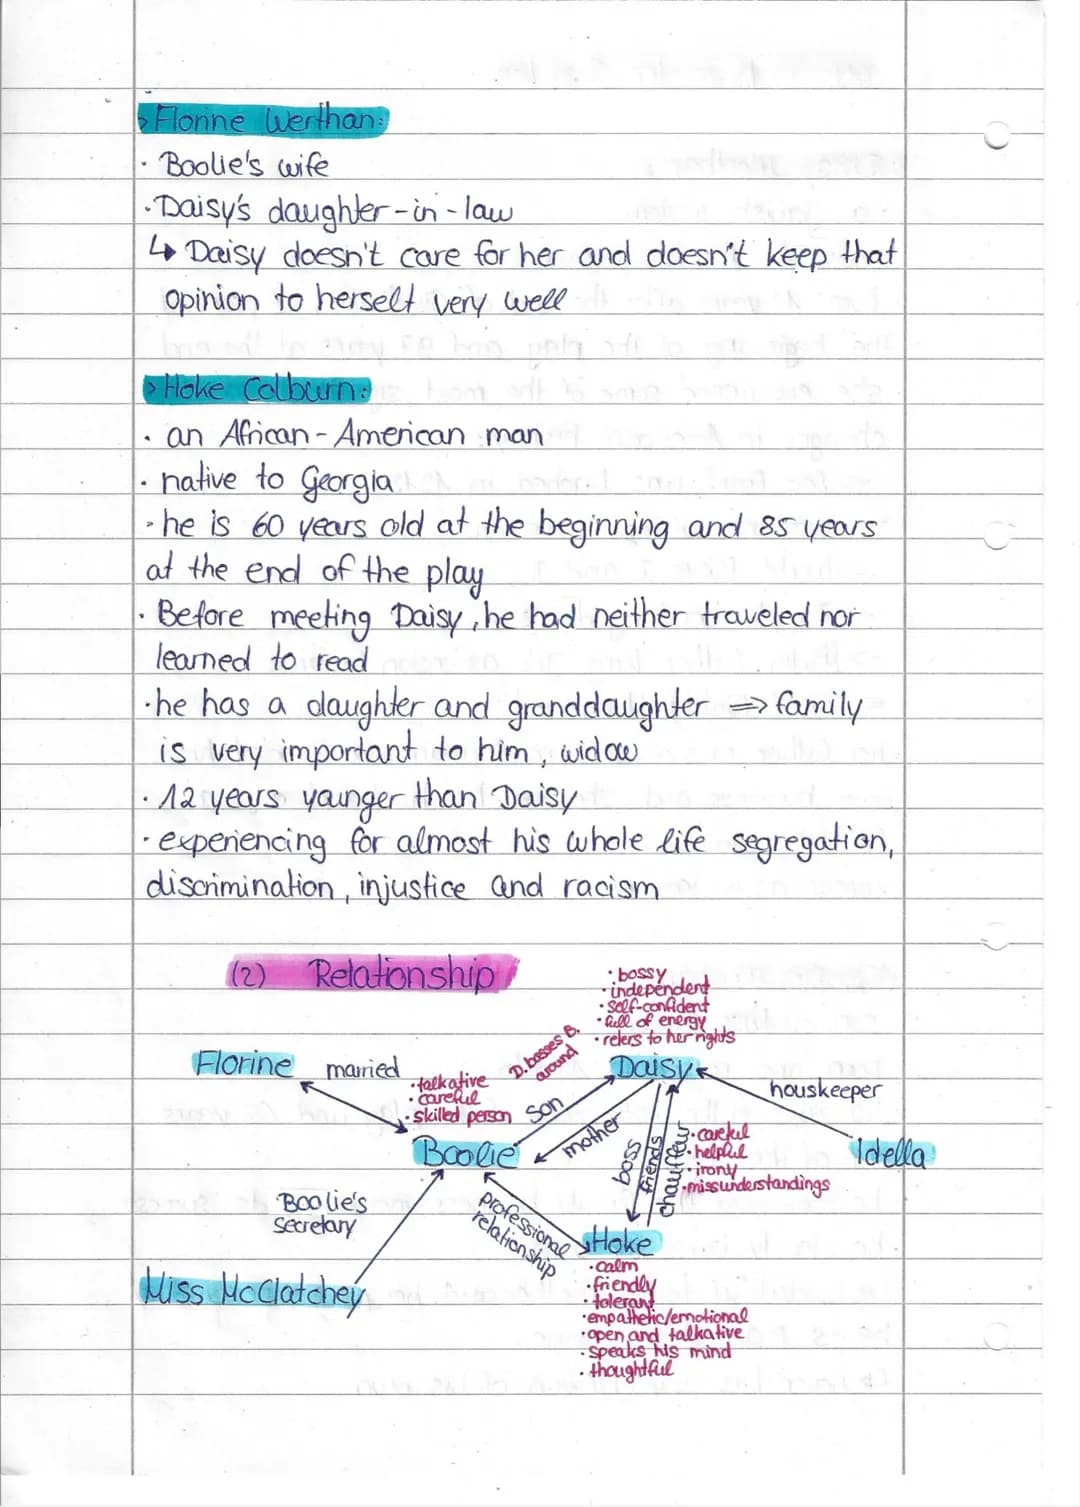 > Florine Werthan:
· Boolie's wife
· Daisy's daughter-in-law
↳ Daisy doesn't care for her and doesn't keep that
opinion to herself very well
> Hoke Colburn:
· an African-American man
· native to Georgia
· he is 60 years old at the beginning and 85 years
at the end of the play
· Before meeting Daisy, he had neither traveled nor
learned to read
· he has a daughter and granddaughter ⇒ family
is very important to him, widow
· 12 years younger than Daisy
· experiencing for almost his whole life segregation,
discrimination, injustice and racism
(2) Relationship
· bossy
· independent
· self-confident
· full of energy
· refers to her rights
Florine
married
· talkative
· careful
· skilled person
D. bosses B.
around
Daisy
houskeeper
Son
mother
Boolie
boss
friends
chauffeur
· careful
· helpful
· irony
· missunderstandings
Idella
Boolie's
secretary
professional
relationship
Hoke
Miss McClatchey
· calm
· friendly
· tolerant
· empathetic/emotional
· open and talkative
· speaks his mind
· thoughtful